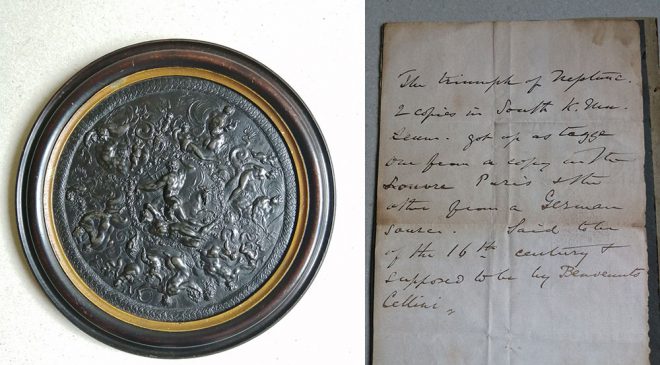 The triumph of Neptune.
2 copies in South K. Mu-
seum. got up as tagge
one from a copy in the
Louvre Paris & the
other from a German
source. Said to be
of the 16th century &
supposed to be by Benvenuto
Cellini